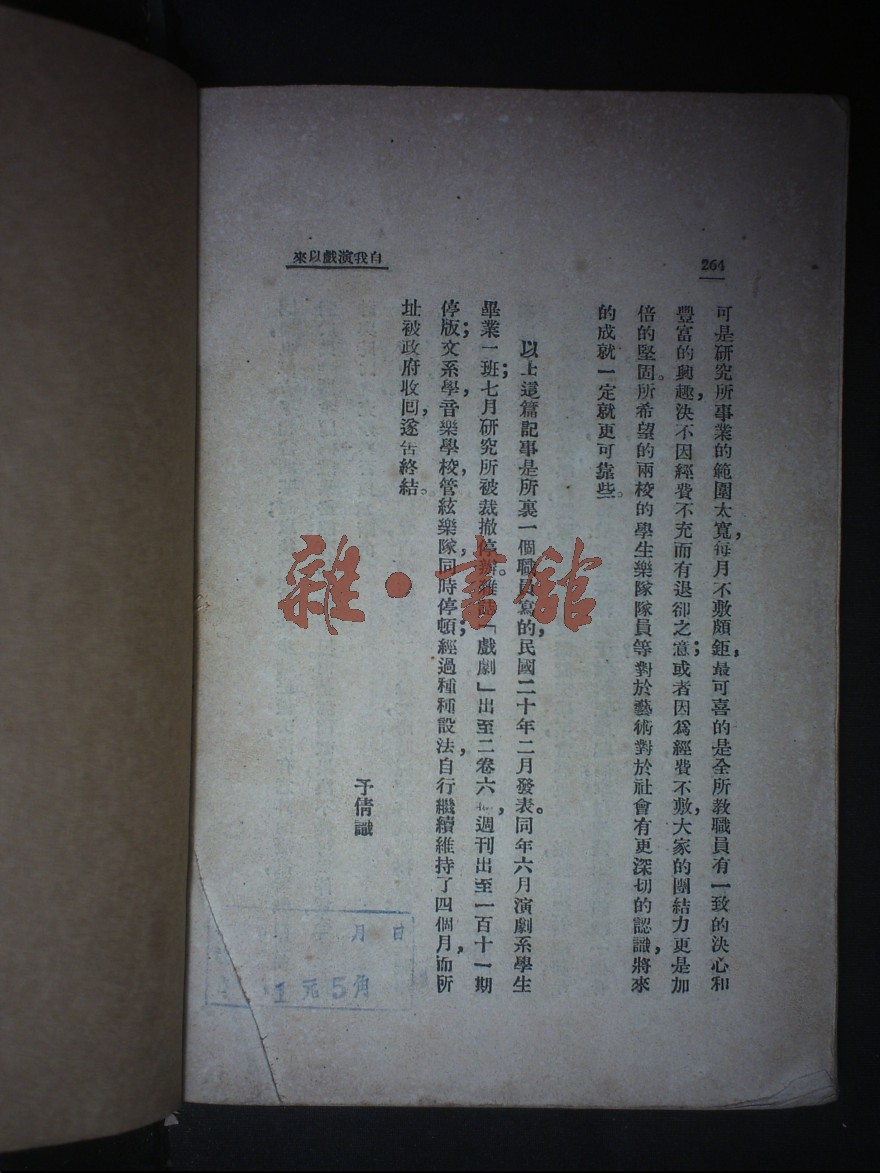 264
自我演戲以來
可是研究所事業的範圍太寬，每月不敷頗鉅，最可喜的是全所教職員有一致的決心和
豐富的興趣，決不因經費不充而有退卻之意；或者因爲經費不敷，大家的團結力更是加
倍的堅固。所希望的兩校的學生樂隊隊員等對於藝術對於社會有更深切的認識，將來
的成就一定就更可靠些。
以上這篇記事是所裏一個職員寫的，民國二十年二月發表。同年六月演劇系學生
畢業一班；七月研究所被裁撤停辦。雜誌「戲劇」出至二卷六，週刊出至一百十一期
停版；文系學，音樂學校，管絃樂隊，同時停頓；經過種種設法，自行繼續維持了四個月，而所
址被政府收回，遂告終結。
予倩識
雜·書館
月 日
1元5角